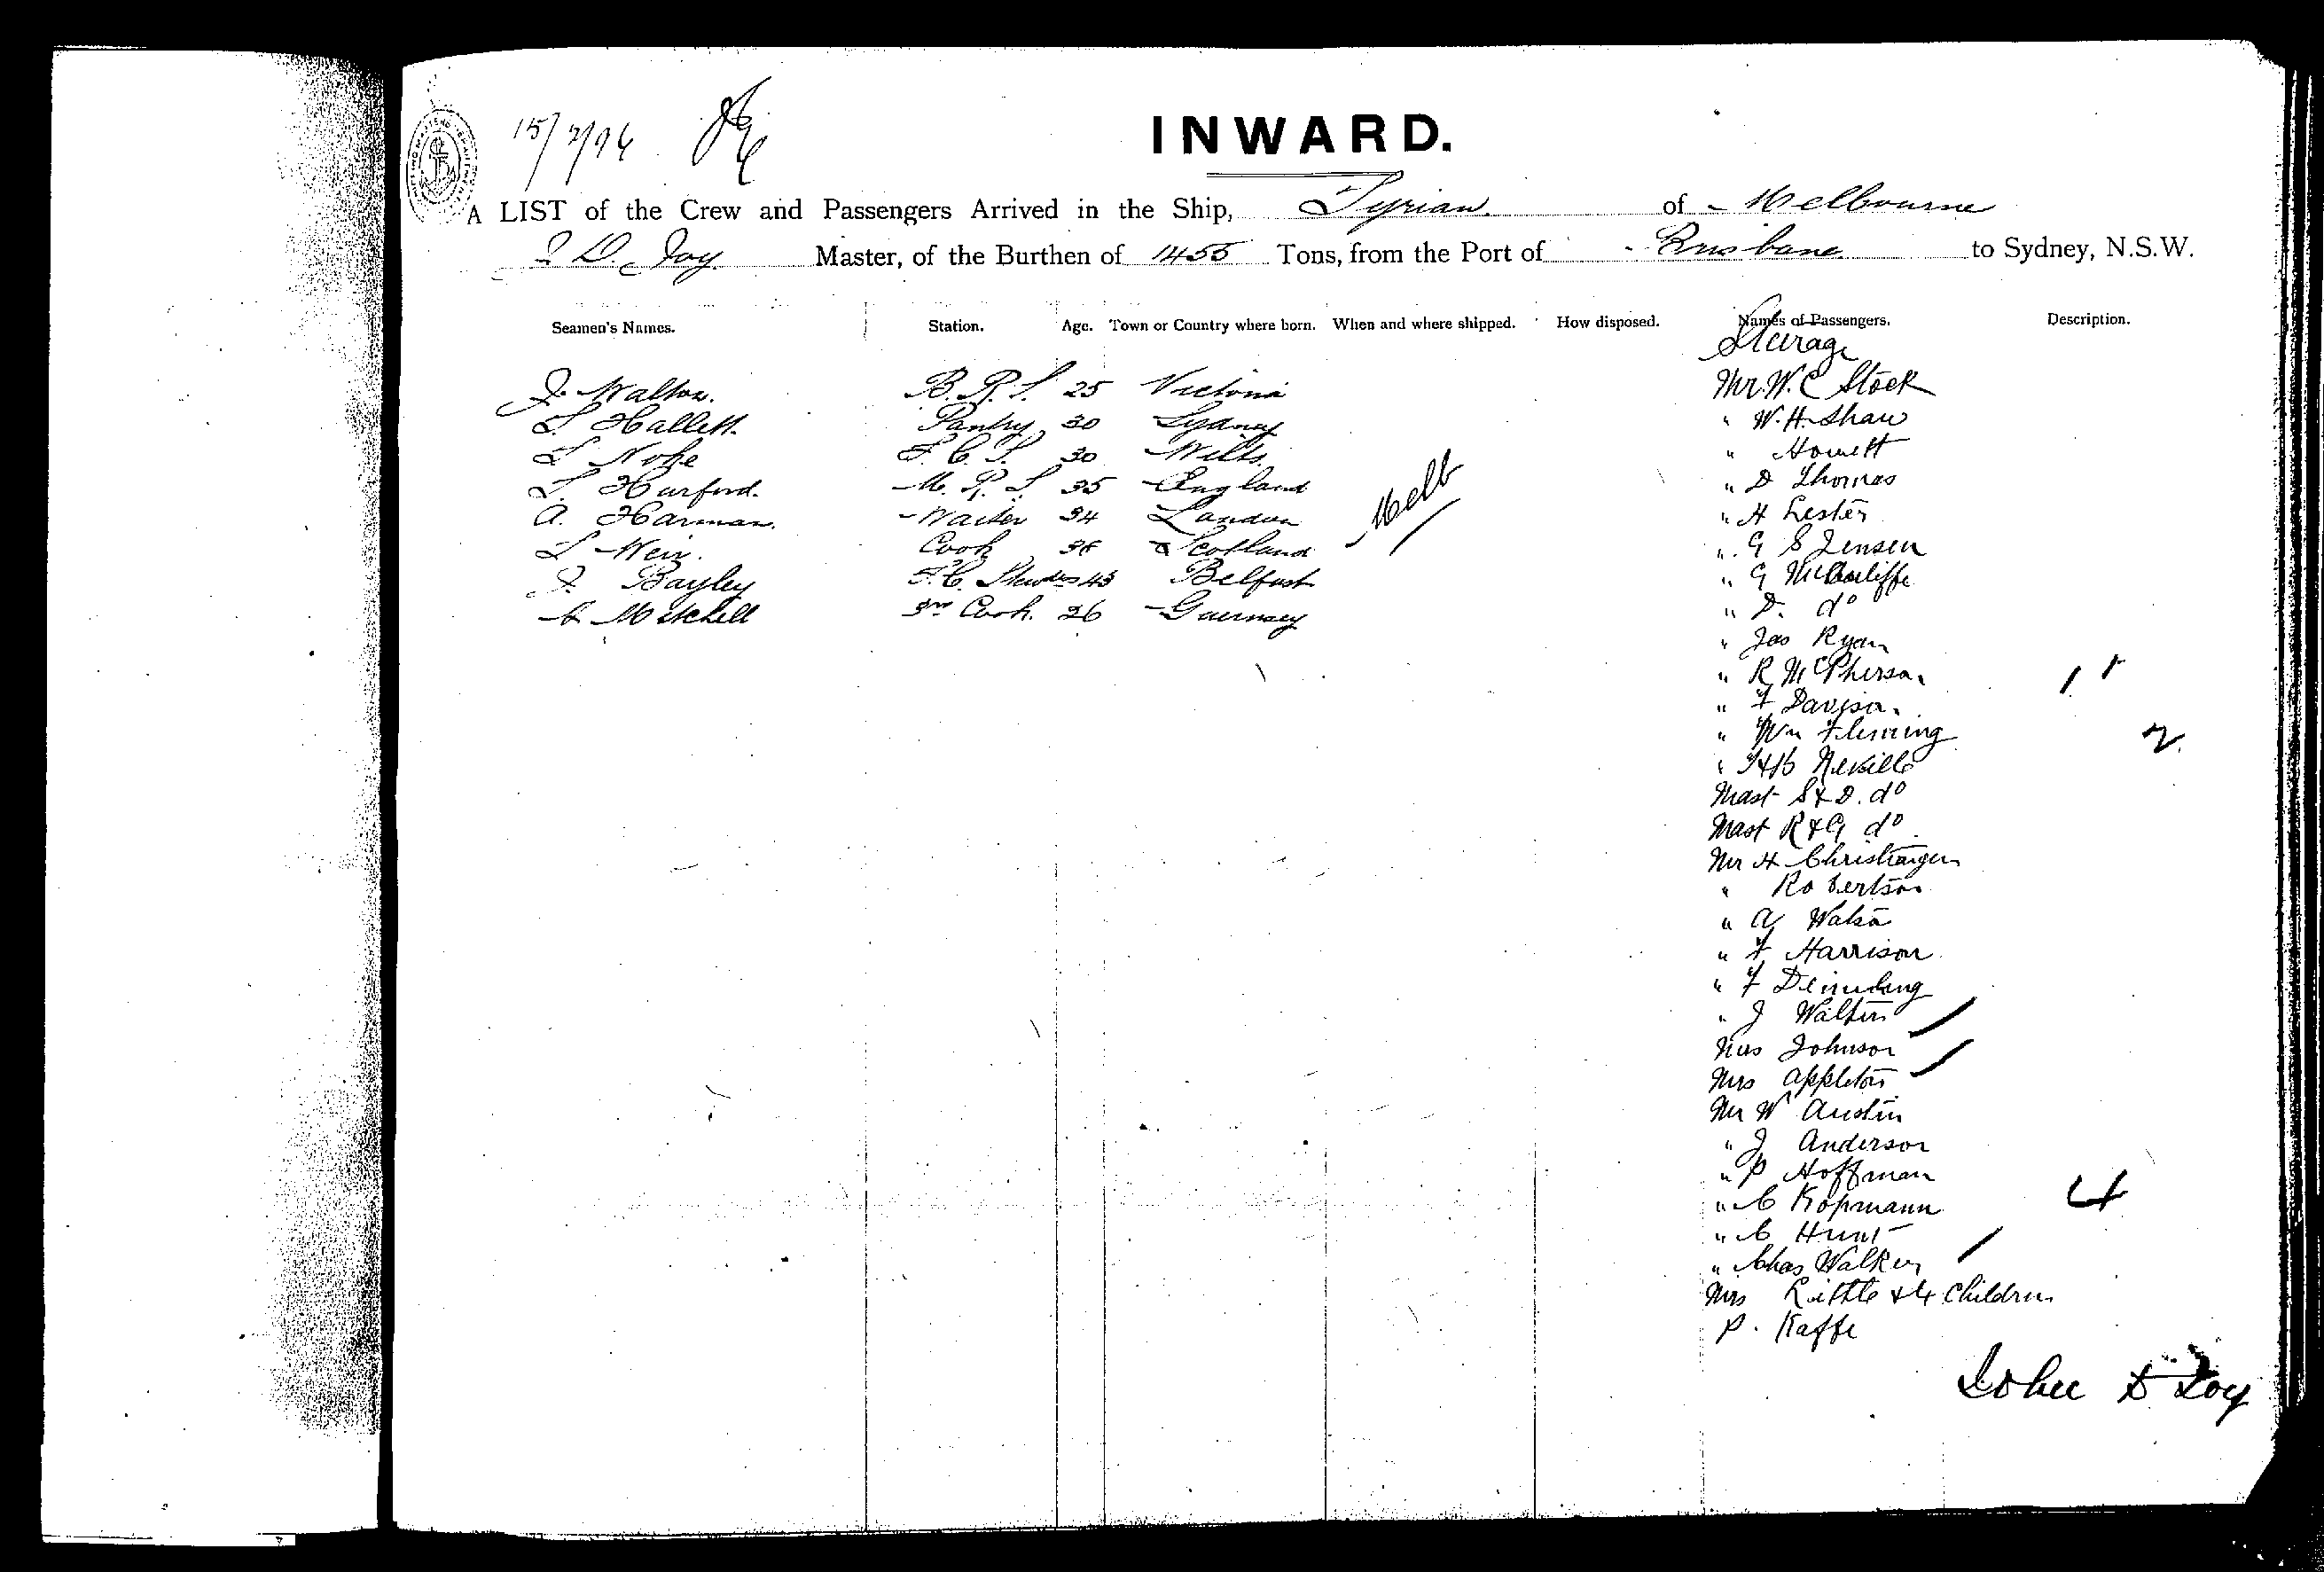 INWARD.
A LIST of the Crew and Passengers Arrived in the Ship, Tyrian of Melbourne
J D. Joy Master, of the Burthen of 1455 Tons, from the Port of Brisbane to Sydney, N.S.W.
Seamen's Names. Station. Age. Town or Country where born. When and where shipped. How disposed. Names of Passengers. Description.
Steerage
J. Walton. B. R. S. 25 Victoria
Hallett Pantry 30 Sydney
F. C. S. 30 Wilts.
Harford. M. R. S 35 England
A. Harman. Waiter 34 London
Weir. Cook Scotland
J. Bayley F.C. 45 Belfast
C Mitchell 3rd Cook. 26 Guernsey
Melb
Mr. W. C Stock
" W. H. Shaw
" Howett
" D Thomas
" H Lester
" G S Jensen
" G McAuliffe
" D. do
" Jas Ryan
" R McPherson
" F Davison
" Wm Fleming
" Neville
Mast S & D. do
Mast R & G do
Mr H Christiansen
" Robertson
" A
" F Harrison
" F
" J Walton
Johnson
Mrs Appleton
Mr W Austin
" J Anderson
" P Hoffman
" C Kopmann
" C Hunt
" Chas Walker
Mrs Little & 4 Children
P. Kaffe
2
4
John D Joy